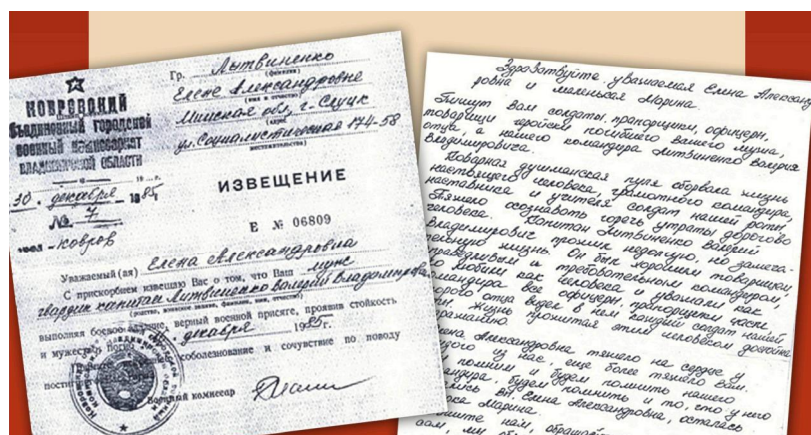 КОВРОВСКИЙ
объединенный городской
военный комиссариат
ВЛАДИМИРСКОЙ ОБЛАСТИ
30. декабря 1985
№ 7
Ковров
Гр. Литвиненко
(фамилия)
Елене Александровне
(имя и отчество)
Минская обл, г. Слуцк
(адрес
ул. Социалистическая 174-58
местожительства)
ИЗВЕЩЕНИЕ
Е № 06809
Уважаемый(ая) Елена Александровна
С прискорбием извещаю Вас о том, что Ваш муж
гвардии капитан Литвиненко Валерий Владимирович
(родство, воинское звание, фамилия, имя, отчество)
выполняя боевое задание, верный военной присяге, проявив стойкость
и мужество, декабря 1985 г.
соболезнование и сочувствие по поводу
Военный комиссар
Здравствуйте уважаемая Елена Александ
ровна и маленькая Марина
Пишут вам солдаты, прапорщики, офицеры,
товарищи геройски погибшего вашего мужа,
отца, а нашего командира Литвиненко Валерия
Владимировича.
Коварная душманская пуля оборвала жизнь
настоящего человека, грамотного командира,
наставника и учителя солдат нашей роты.
Тяжело осознавать горечь утраты дорогого
человека. Капитан Литвиненко Валерий
Владимирович прожил недолгую, но замеча-
тельную жизнь. Он был хорошим товарищем,
праведливым и требовательным командиром,
любили как человека и уважали как
командира все офицеры, прапорщики части,
орого отца видел в нем каждый солдат нашей
жизнь прожитая этим человеком достойна
Александровна тяжело на сердце у
из нас, еще более тяжело вам.
помним и будем помнить нашего
андира, будем помнить и то, что у него
лись вы, Елена Александровна, осталась
Марина.
ишите нам,